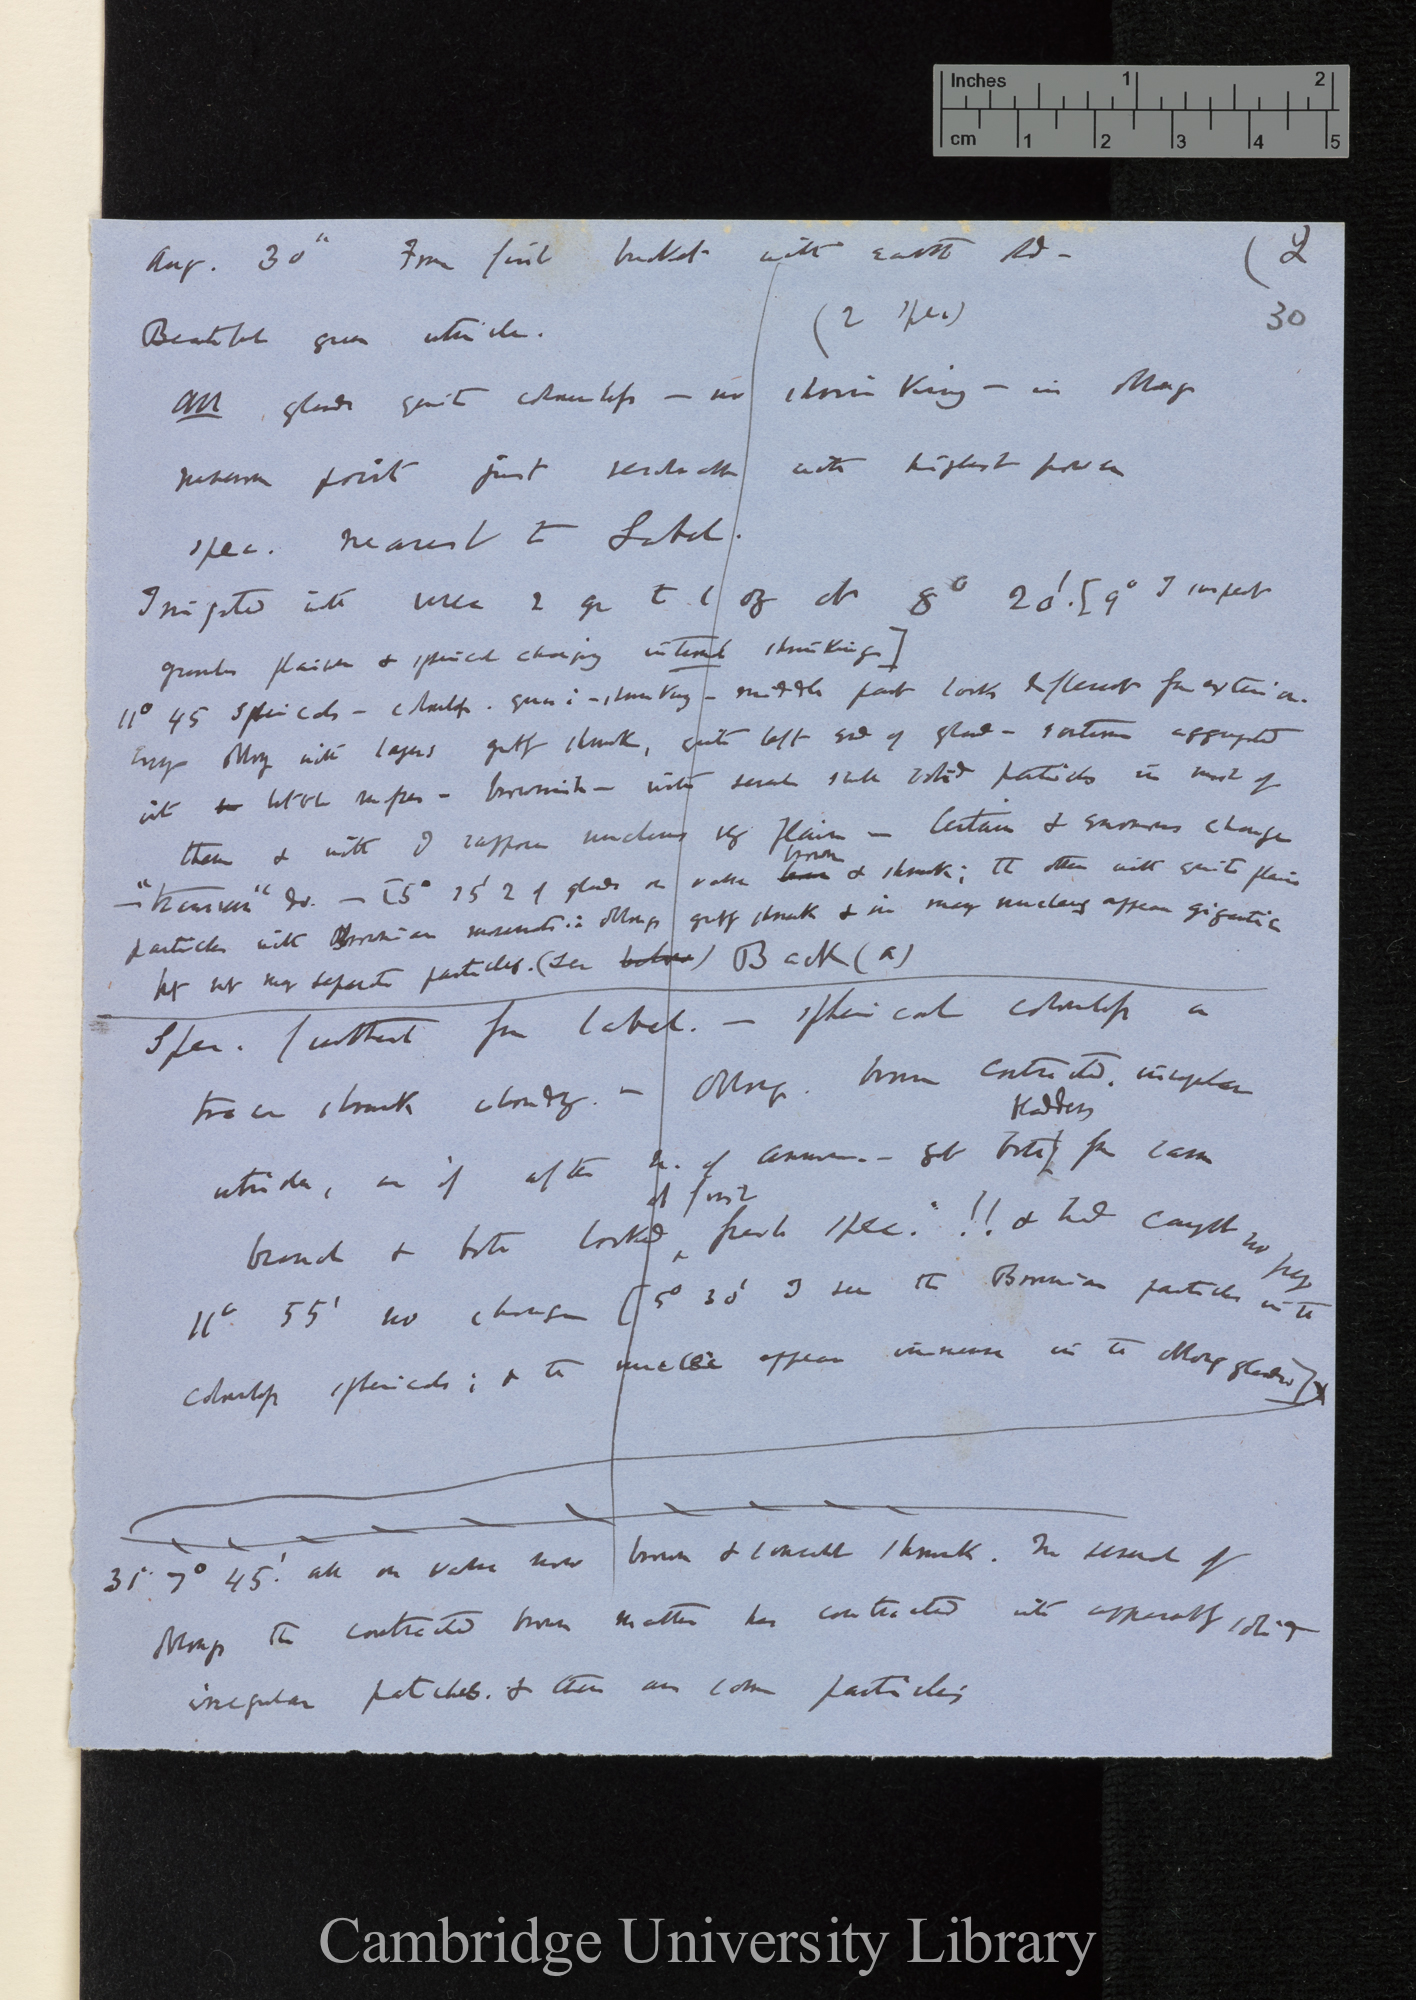 Inches 1 2
cm 1 2 3 4 5
Aug. 30th From first bucket with earth Rd — (2
30
Beautiful green utricle. (2 spec)
All glands quite colourless — no shrinking — in oblong
nucleus point just visible with highest power
spec. nearest to Label.
Irrigated with urea 2 gr to 1 oz at 8° 20'. [9° I inspect
granules plainer & spherical changing internal shrinking]
11° 45 Sphericals — colourless. quasi-shrinking — middle part looks different from exterior.
Every oblong with layers greatly shrunk, quite left end of gland — contents aggregated
into little masses — brownish — with several such solid particles in most of
them & with I suppose nucleus very plain — Certain & enormous change
—"Wonderful" &c. — [5° 25' 2 of glands on valve brown & shrunk; the other with quite plain
particles with Brownian movements: oblongs greatly shrunk & in many nucleus appear gigantic
but not many separate particles. (see below) Back (a)
Spec. furthest from label. — spherical colourless or
trace shrunk cloudy. — Oblong. brown contracted. irregular
bladders
utricles, as if after C. of Ammon. — got both from same
at first
branch & both looked fresh spec. !! & had caught no prey
11° 55' no change [5° 30' I see the Brownian particles in the
colourless sphericals; & the nuclei appear immense in the oblong glands]
31. 7° 45'. all on valve now brown & somewhat shrunk. In several of
oblongs the contracted brown matter has contracted into apparently solid
irregular patches. & there are some particles
Cambridge University Library